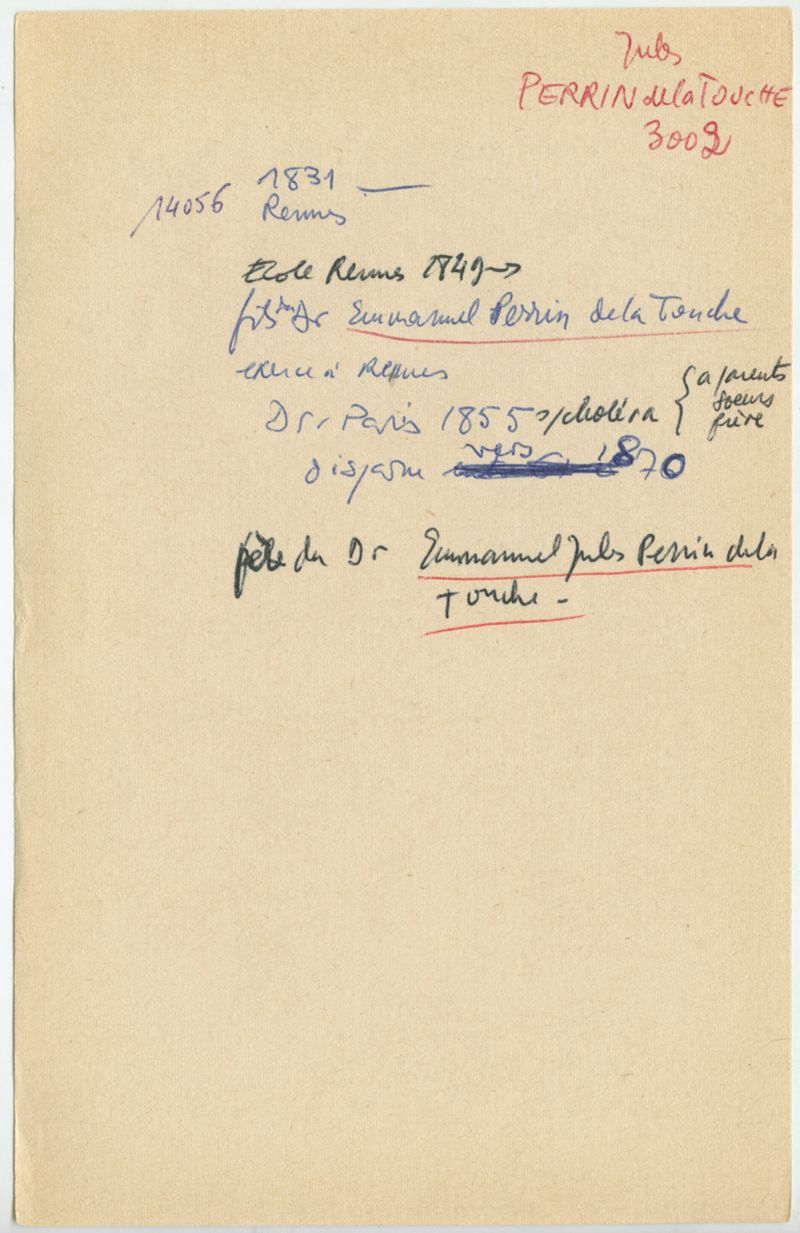 Jules
PERRIN de la TOUCHE
3002
1831 —
14056 Rennes
Ecole Rennes 1849
fils du Dr Emmanuel Perrin de la Touche
exerce à Rennes
Dr Paris 1855 s/choléra { a parents
soeurs
frère
vers
disparu 1870
père du Dr Emmanuel Jules Perrin de la
Touche -